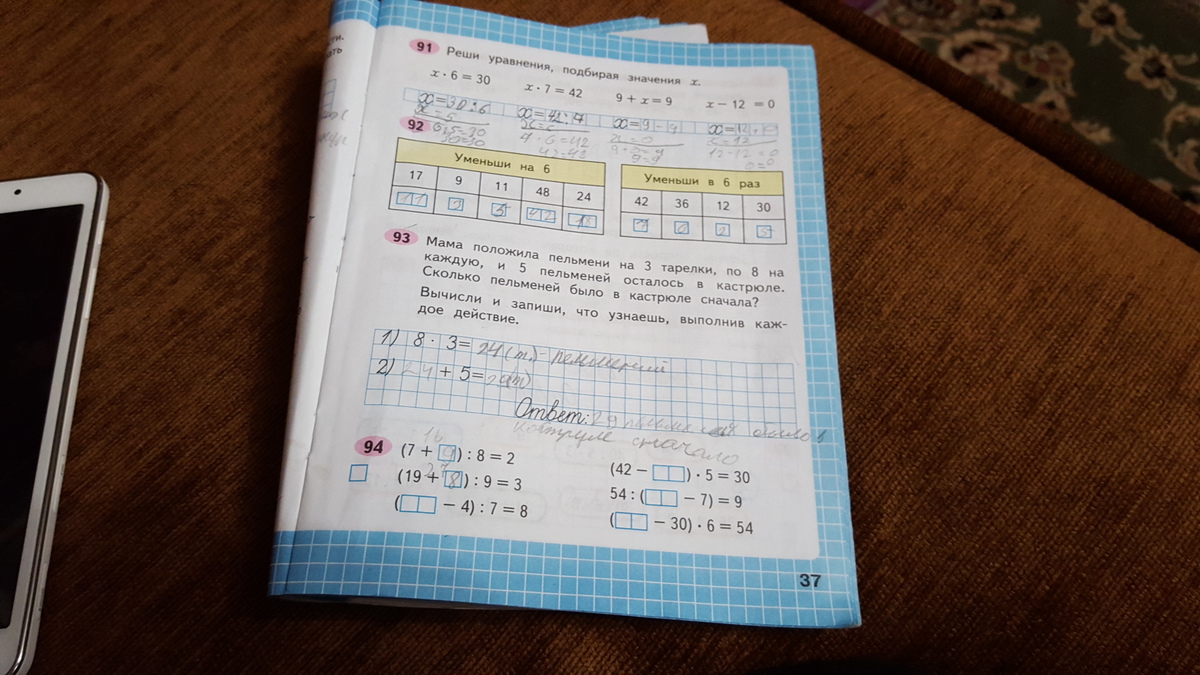 91 Реши уравнения, подбирая значения x.
x · 6 = 30 x · 7 = 42 9 + x = 9 x − 12 = 0
x=30:6 x=42:7 x=9-9 x=12+0
x=5 x=6 x=0 x=12
6·5=30 7·6=42 9+0=9 12-12=0
30=30 42=42 9=9 0=0
92
Уменьши на 6 Уменьши в 6 раз
17 9 11 48 24 42 36 12 30
11 3 5 42 18 7 6 2 5
93 Мама положила пельмени на 3 тарелки, по 8 на
каждую, и 5 пельменей осталось в кастрюле.
Сколько пельменей было в кастрюле сначала?
Вычисли и запиши, что узнаешь, выполнив каж-
дое действие.
1) 8 · 3= 24 (т.)
2) 24 + 5=
Ответ: 29
сначало
16
94 (7 + 9) : 8 = 2 (42 − ) · 5 = 30
27
(19 + 8) : 9 = 3 54 : ( − 7) = 9
( − 4) : 7 = 8 ( − 30) · 6 = 54
37